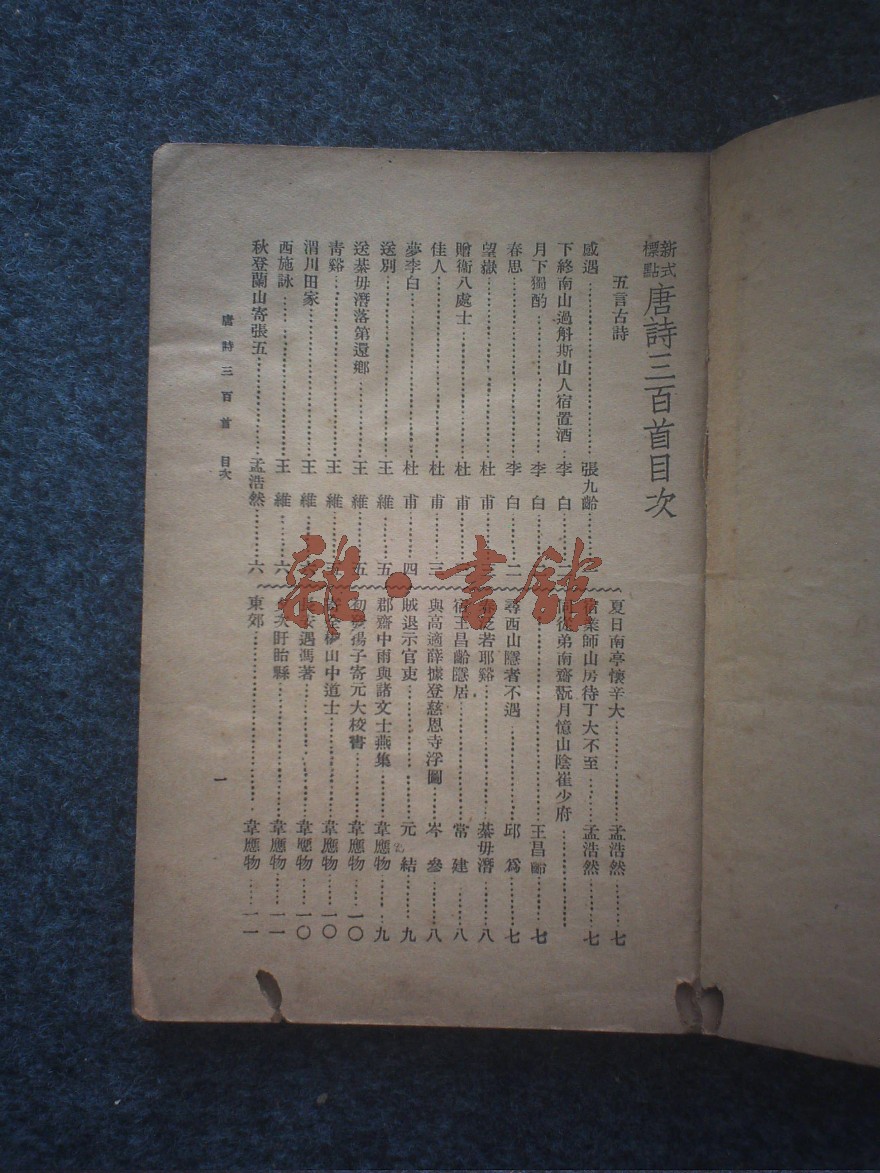 新式標點 唐詩三百首目次
五言古詩
感遇……張九齡……
下終南山過斛斯山人宿置酒…李白……
月下獨酌……李白……
春思……李白……二
望嶽……杜甫……
贈衛八處士……杜甫……
佳人……杜甫……三
夢李白……杜甫……四
送別……王維……五
送綦毋潛落第還鄉……王維……五
青谿……王維……五
渭川田家……王維……
西施詠……王維……六
秋登蘭山寄張五……孟浩然……六
夏日南亭懷辛大……孟浩然……七
宿業師山房待丁大不至……孟浩然……七
同從弟南齋翫月憶山陰崔少府……
……王昌齡……七
尋西山隱者不遇……邱為……七
春泛若耶谿……綦毋潛……八
宿王昌齡隱居……常建……八
與高適薛據登慈恩寺浮圖……岑參……八
賊退示官吏……元結……九
郡齋中雨與諸文士燕集……韋應物……九
初發揚子寄元大校書……韋應物……一〇
寄全椒山中道士……韋應物……一〇
長安遇馮著……韋應物……一〇
夕次盱眙縣……韋應物……一一
東郊……韋應物……一一
唐詩三百首 目次
一
雜·書館